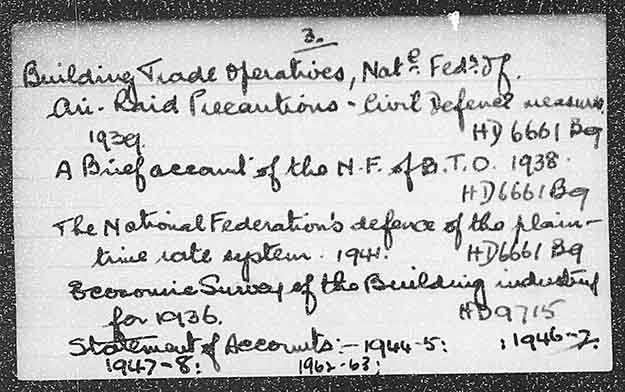 3.
Building Trade Operatives, Nat.l Fed.n of.
Air-Raid Precautions - Civil Defence measures.
1939. HD 6661 B9
A Brief account of the N.F. of B.T.O. 1938.
HD6661B9
The National Federation's defence of the plain-
time rate system. 1941. HD6661 B9
Economic Survey of the Building industry
for 1936. HD9715
Statement of Accounts:- 1944-5: ; 1946-7.
1947-8: 1962-63: